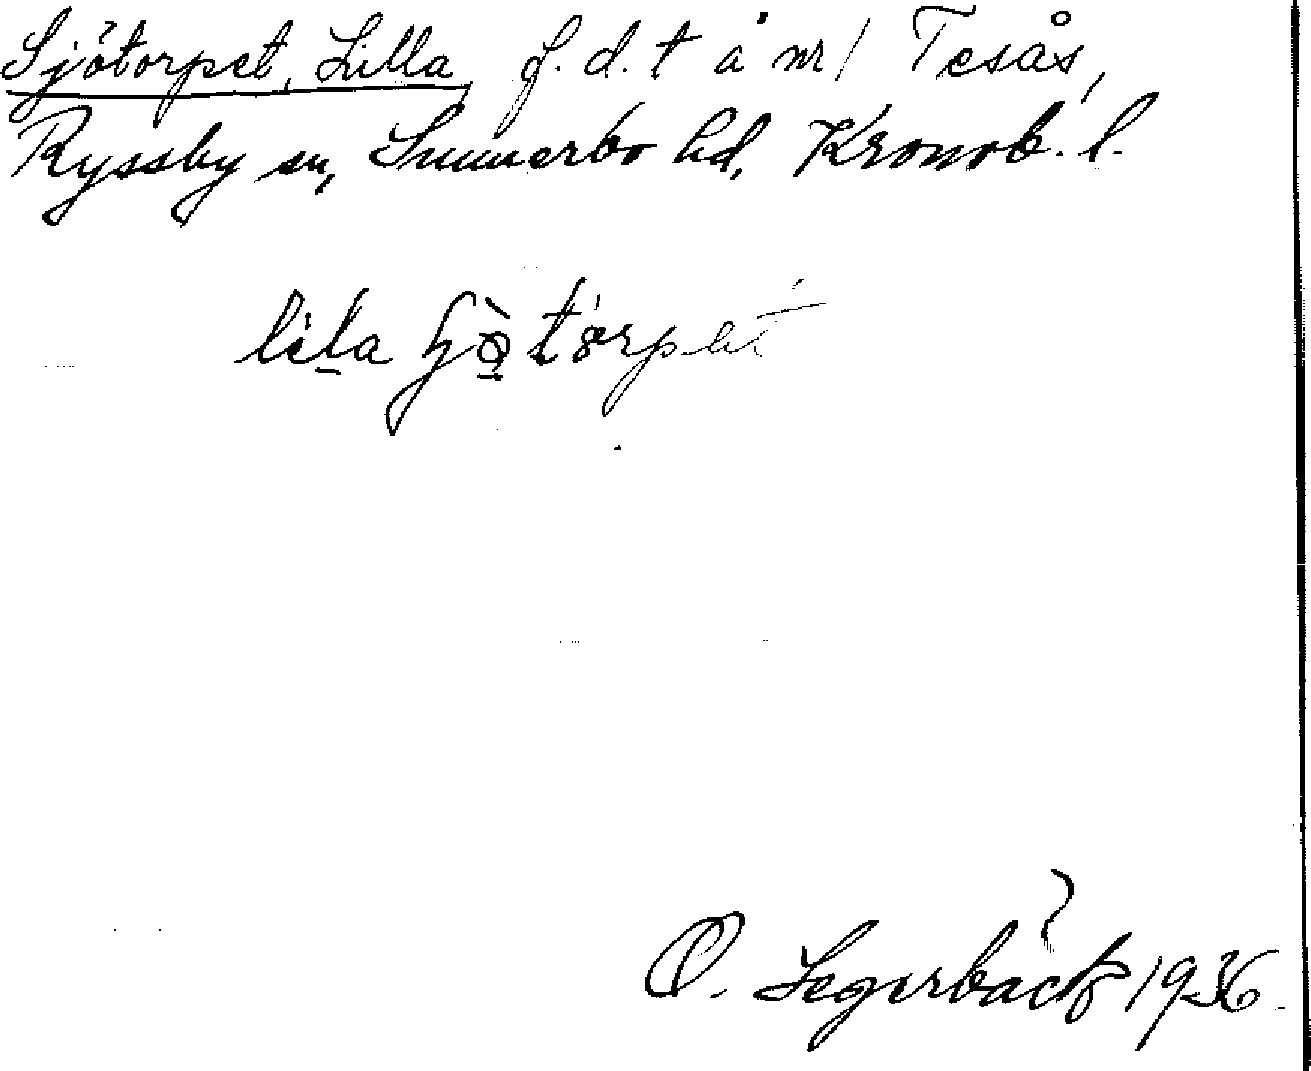 Sjötorpet, Lilla, f.d. t å nr 1 Tesås,
Ryssby sn, Sunnerbo hd, Kronob. l.
lila
O. Segerbäck 1936